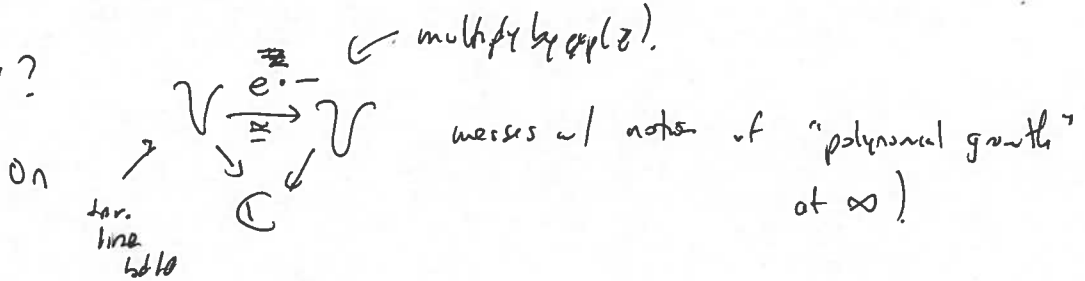 multiply by exp(z).
?
e^z · —
V → V
≅
messes w/ notion of "polynomial growth"
On
at ∞)
ℂ
line
bdle